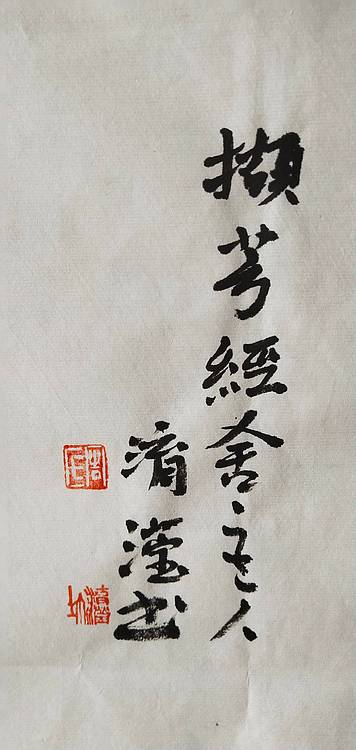 擷芳經舍主人
濟瀅書